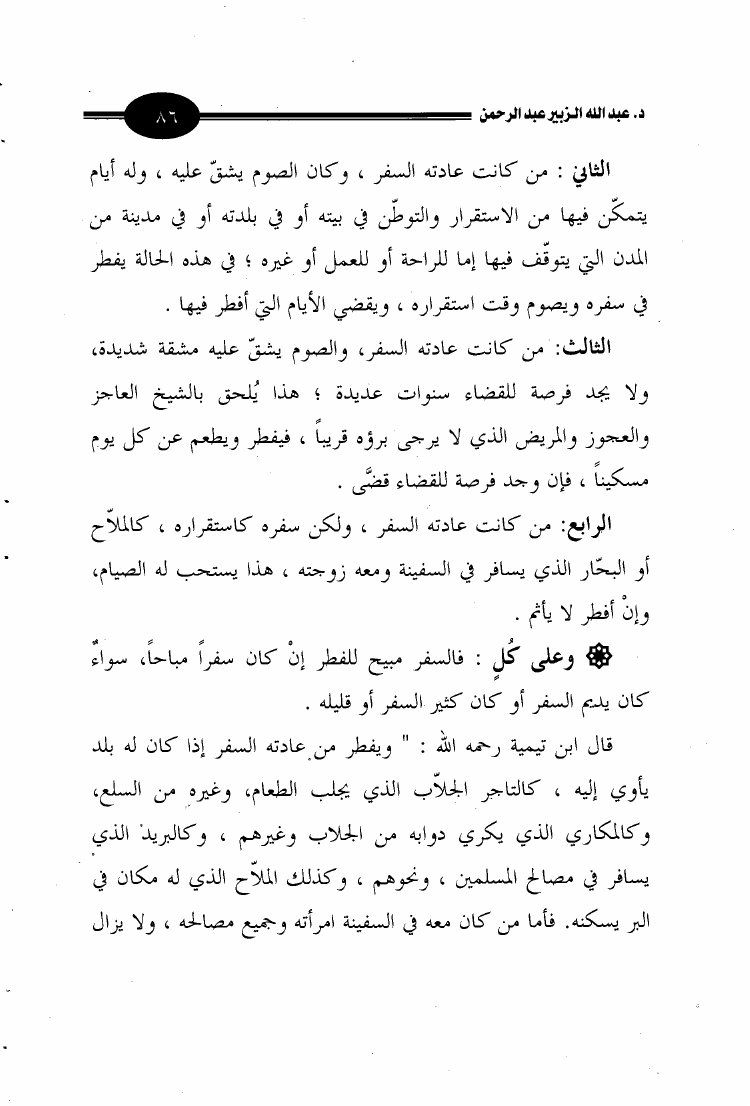 د. عبد الله الزبير عبد الرحمن ٨٦
الثاني : من كانت عادته السفر ، وكان الصوم يشقّ عليه ، وله أيام
يتمكّن فيها من الاستقرار والتوطّن في بيته أو في بلدته أو في مدينة من
المدن التي يتوقّف فيها إما للراحة أو للعمل أو غيره ؛ في هذه الحالة يفطر
في سفره ويصوم وقت استقراره ، ويقضي الأيام التي أفطر فيها .
الثالث: من كانت عادته السفر، والصوم يشقّ عليه مشقة شديدة،
ولا يجد فرصة للقضاء سنوات عديدة ؛ هذا يُلحق بالشيخ العاجز
والعجوز والمريض الذي لا يرجى برؤه قريباً ، فيفطر ويطعم عن كل يوم
مسكيناً ، فإن وجد فرصة للقضاء قضَّى .
الرابع: من كانت عادته السفر ، ولكن سفره كاستقراره ، كالملاّح
أو البحّار الذي يسافر في السفينة ومعه زوجته ، هذا يستحب له الصيام،
وإنْ أفطر لا يأثم .
وعلى كُلٍ : فالسفر مبيح للفطر إنْ كان سفراً مباحاً، سواءٌ
كان يديم السفر أو كان كثير السفر أو قليله .
قال ابن تيمية رحمه الله : " ويفطر من عادته السفر إذا كان له بلد
يأوي إليه ، كالتاجر الجلاّب الذي يجلب الطعام، وغيره من السلع،
وكالمكاري الذي يكري دوابه من الجلاب وغيرهم ، وكالبريد الذي
يسافر في مصالح المسلمين ، ونحوهم ، وكذلك الملاّح الذي له مكان في
البر يسكنه. فأما من كان معه في السفينة امرأته وجميع مصالحه ، ولا يزال